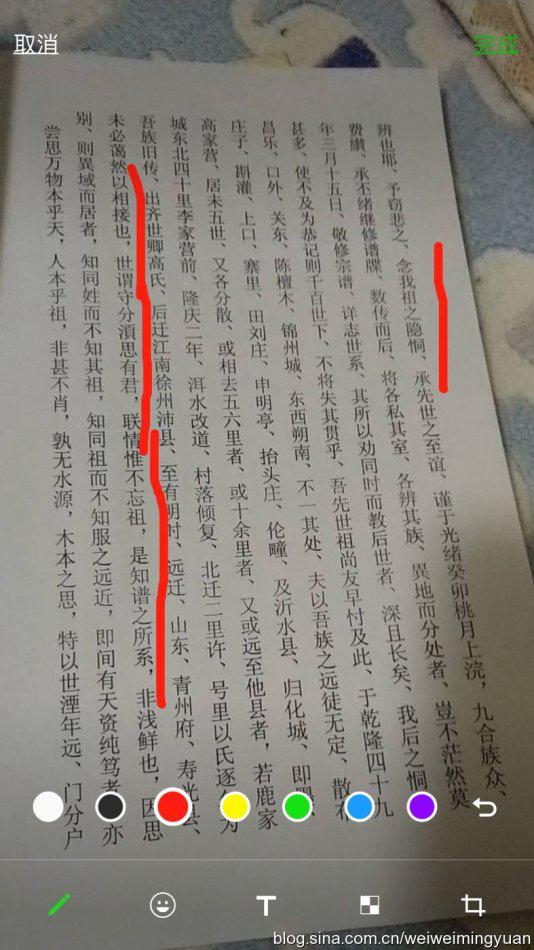 取消
完成
尝思万物本乎天,人本乎祖,非甚不肖,孰无水源,木本之思,特以世湮年远、门分户
别、则異域而居者,知同姓而不知其祖,知同祖而不知服之远近,即间有天资纯笃者 亦
未必蔼然以相接也,世谓守分湏思有君,联情惟不忘祖,是知谱之所系,非浅鲜也,因思
吾族旧传、出齐世卿高氏、后迁江南徐州沛县、至有明时、远迁、山东、青州府、寿光县、
城东北四十里李家营前、隆庆二年、洱水改道、村落倾复、北迁二里许、号里以氏逐 为
高家营、居未五世、又各分散、或相去五六里者、或十余里者、又或远至他县者,若鹿家
庄子、斟灌、上口、寨里、田刘庄、申明亭、抬头庄、伦疃、及沂水县、归化城、即墨、
昌乐、口外、关东、陈檀木、锦州城、东西朔南、不一其处、夫以吾族之远徒无定、散布
甚多、使不及为恭记则千百世下、不将失其贯乎、吾先世祖尚友早忖及此、于乾隆四十九
年三月十五日、敬修宗谱、详志世系、其所以劝同时而教后世者、深且长矣、我后之恫
费缵、承丕绪继修谱牒、数传而后、将各私其室、各辨其族、異地而分处者、豈不茫然莫
辨也耶、予窃悲之、念我祖之隐恫、承先世之至谊、谨于光绪癸卯桃月上浣,九合族众、
T
blog.sina.com.cn/weiweimingyuan